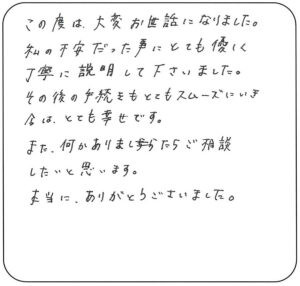 この度は、大変お世話になりました。
私の不安だった声にとても優しく
丁寧に説明して下さいました。
その後の手続きもとてもスムーズにいき
今は、とても幸せです。
また、何かありましたらご相談
したいと思います。
本当に、ありがとうございました。